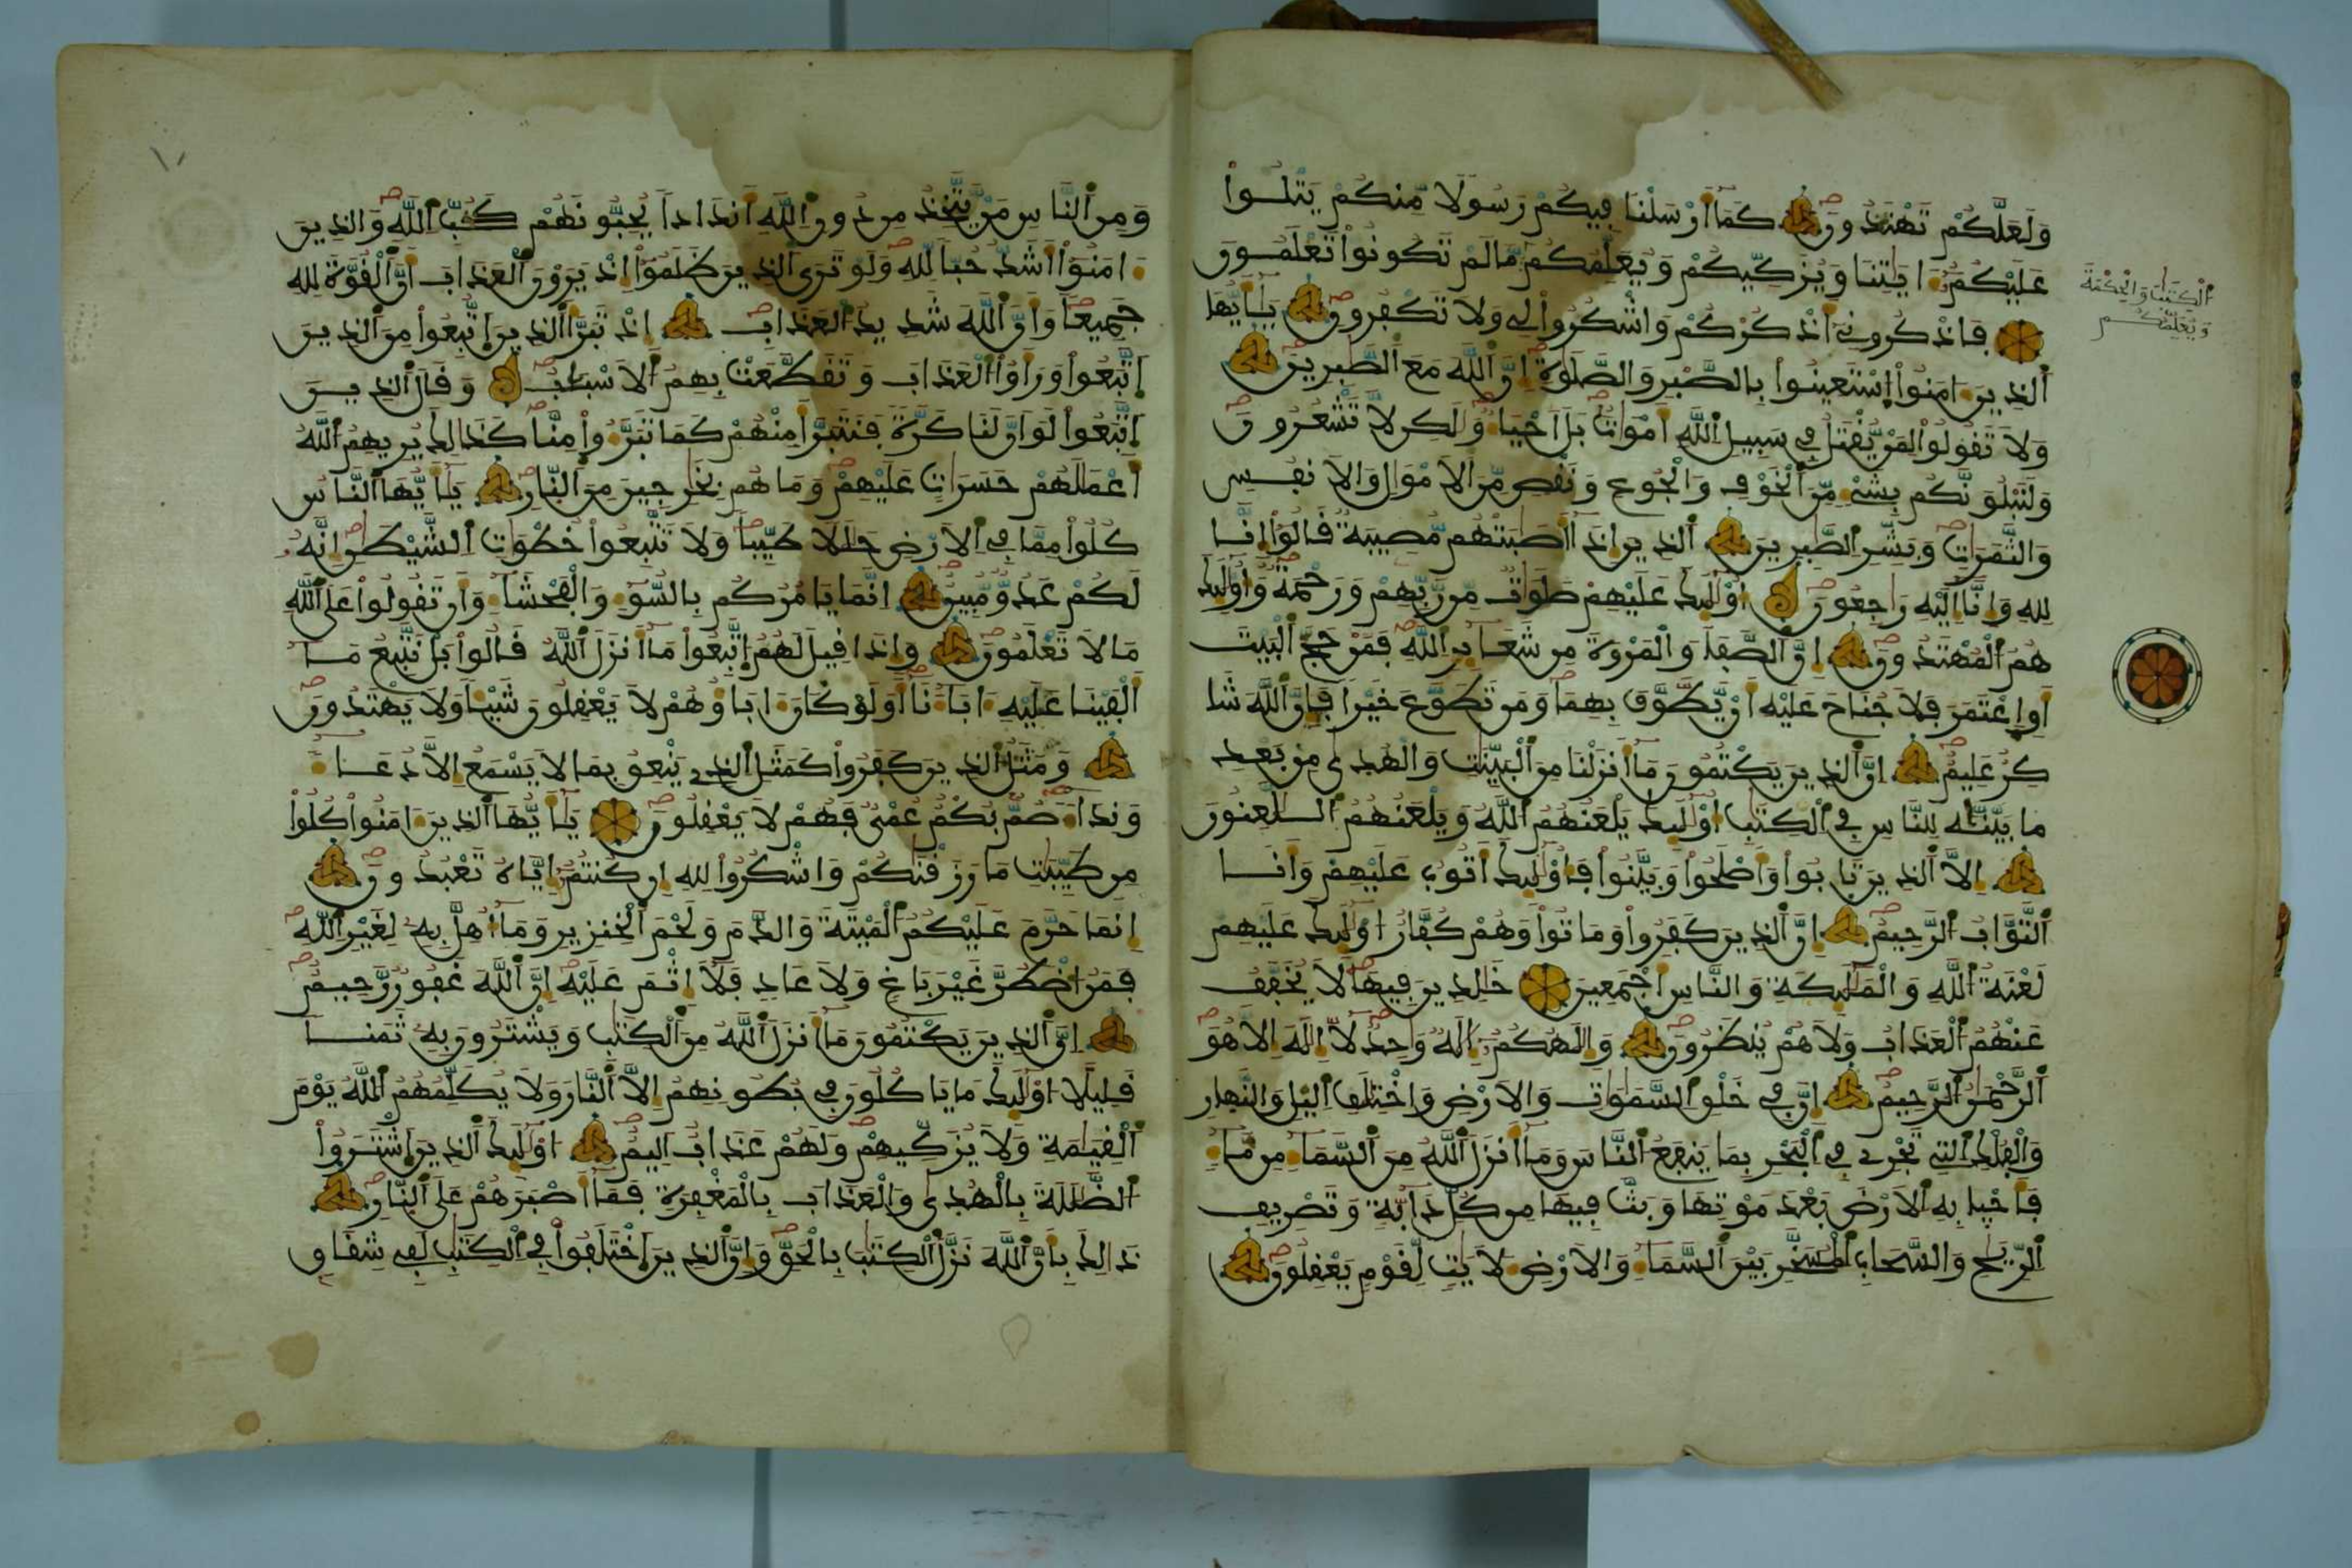 وَلَعَلَّكُمْ تَهْتَدُونَ كَمَا أَرْسَلْنَا فِيكُمْ رَسُولًا مِّنكُمْ يَتْلُوا
عَلَيْكُمُ ءَايَٰتِنَا وَيُزَكِّيكُمْ وَيُعَلِّمُكُم مَّا لَمْ تَكُونُوا تَعْلَمُونَ
الْكِتَٰبَ وَالْحِكْمَةَ
وَيُعَلِّمُكُم
فَاذْكُرُونِي أَذْكُرْكُمْ وَاشْكُرُوا لِي وَلَا تَكْفُرُونِ يَٰأَيُّهَا
الذِينَ ءَامَنُوا اسْتَعِينُوا بِالصَّبْرِ وَالصَّلَوٰةِ إِنَّ اللَّهَ مَعَ الصَّٰبِرِينَ
وَلَا تَقُولُوا لِمَنْ يُّقْتَلُ فِي سَبِيلِ اللَّهِ أَمْوَٰتٌ بَلَ احْيَاءٌ وَلَٰكِن لَّا تَشْعُرُونَ
وَلَنَبْلُوَنَّكُم بِشَيْءٍ مِّنَ الْخَوْفِ وَالْجُوعِ وَنَقْصٍ مِّنَ الَامْوَٰلِ وَالَانفُسِ
وَالثَّمَرَٰتِ وَبَشِّرِ الصَّٰبِرِينَ الذِينَ إِذَا أَصَٰبَتْهُم مُّصِيبَةٌ قَالُوا إِنَّا
لِلهِ وَإِنَّا إِلَيْهِ رَٰجِعُونَ أُوْلَٰئِكَ عَلَيْهِمْ صَلَوَٰتٌ مِّن رَّبِّهِمْ وَرَحْمَةٌ وَأُوْلَٰئِكَ
هُمُ الْمُهْتَدُونَ إِنَّ الصَّفَا وَالْمَرْوَةَ مِن شَعَائِرِ اللَّهِ فَمَنْ حَجَّ الْبَيْتَ
أَوِ اِعْتَمَرَ فَلَا جُنَاحَ عَلَيْهِ أَنْ يَّطَّوَّفَ بِهِمَا وَمَن تَطَوَّعَ خَيْرًا فَإِنَّ اللَّهَ شَا
كِرٌ عَلِيمٌ إِنَّ الذِينَ يَكْتُمُونَ مَا أَنزَلْنَا مِنَ الْبَيِّنَٰتِ وَالْهُدَىٰ مِنْ بَعْدِ
مَا بَيَّنَّٰهُ لِلنَّاسِ فِي الْكِتَٰبِ أُوْلَٰئِكَ يَلْعَنُهُمُ اللَّهُ وَيَلْعَنُهُمُ اللَّٰعِنُونَ
إِلَّا الذِينَ تَابُوا وَأَصْلَحُوا وَبَيَّنُوا فَأُوْلَٰئِكَ أَتُوبُ عَلَيْهِمْ وَأَنَا
التَّوَّابُ الرَّحِيمُ إِنَّ الذِينَ كَفَرُوا وَمَاتُوا وَهُمْ كُفَّارٌ اوْلَٰئِكَ عَلَيْهِمْ
لَعْنَةُ اللَّهِ وَالْمَلَٰئِكَةِ وَالنَّاسِ أَجْمَعِينَ خَٰلِدِينَ فِيهَا لَا يُخَفَّفُ
عَنْهُمُ الْعَذَابُ وَلَا هُمْ يُنظَرُونَ وَإِلَٰهُكُمُ إِلَٰهٌ وَٰحِدٌ لَّا إِلَٰهَ إِلَّا هُوَ
الرَّحْمَٰنُ الرَّحِيمُ إِنَّ فِي خَلْقِ السَّمَٰوَٰتِ وَالَارْضِ وَاخْتِلَٰفِ اليْلِ وَالنَّهارِ
وَالْفُلْكِ التِي تَجْرِي فِي الْبَحْرِ بِمَا يَنفَعُ النَّاسَ وَمَا أَنزَلَ اللَّهُ مِنَ السَّمَاءِ مِن مَّاءٍ
فَأَحْيا بِهِ الَارْضَ بَعْدَ مَوْتِهَا وَبَثَّ فِيهَا مِن كُلِّ دَابَّةٍ وَتَصْرِيفِ
الرِّيَٰحِ وَالسَّحَابِ الْمُسَخَّرِ بَيْنَ السَّمَاءِ وَالَارْضِ لَأٓيَٰتٍ لِّقَوْمٍ يَعْقِلُونَ
١٠
وَمِنَ النَّاسِ مَنْ يَّتَّخِذُ مِن دُونِ اللَّهِ أَندَادًا يُحِبُّونَهُمْ كَحُبِّ اللَّهِ وَالذِينَ
ءَامَنُوا أَشَدُّ حُبًّا لِّلهِ وَلَوْ تَرَى الذِينَ ظَلَمُوا إِذْ يَرَوْنَ الْعَذَابَ أَنَّ الْقُوَّةَ لِلهِ
جَمِيعًا وَأَنَّ اللَّهَ شَدِيدُ الْعَذَابِ إِذْ تَبَرَّأَ الذِينَ اتُّبِعُوا مِنَ الذِينَ
اِتَّبَعُوا وَرَأَوُا الْعَذَابَ وَتَقَطَّعَتْ بِهِمُ الَاسْبَٰبُ وَقَالَ الذِينَ
اِتَّبَعُوا لَوَ انَّ لَنَا كَرَّةً فَنَتَبَرَّأَ مِنْهُمْ كَمَا تَبَرَّءُوا مِنَّا كَذَٰلِكَ يُرِيهِمُ اللَّهُ
أَعْمَٰلَهُمْ حَسَرَٰتٍ عَلَيْهِمْ وَمَا هُم بِخَٰرِجِينَ مِنَ النَّارِ يَٰأَيُّهَا النَّاسُ
كُلُوا مِمَّا فِي الَارْضِ حَلَٰلًا طَيِّبًا وَلَا تَتَّبِعُوا خُطْوَٰتِ الشَّيْطَٰنِ إِنَّهُ
لَكُمْ عَدُوٌّ مُّبِينٌ إِنَّمَا يَامُرُكُم بِالسُّوءِ وَالْفَحْشَاءِ وَأَن تَقُولُوا عَلَى اللَّهِ
مَا لَا تَعْلَمُونَ وَإِذَا قِيلَ لَهُمُ اتَّبِعُوا مَا أَنزَلَ اللَّهُ قَالُوا بَلْ نَتَّبِعُ مَا
أَلْفَيْنَا عَلَيْهِ ءَابَاءَنَا أَوَلَوْ كَانَ ءَابَاؤُهُمْ لَا يَعْقِلُونَ شَيْئًا وَلَا يَهْتَدُونَ
وَمَثَلُ الذِينَ كَفَرُوا كَمَثَلِ الذِي يَنْعِقُ بِمَا لَا يَسْمَعُ إِلَّا دُعَاءً
وَنِدَاءً صُمٌّ بُكْمٌ عُمْيٌ فَهُمْ لَا يَعْقِلُونَ يَٰأَيُّهَا الذِينَ ءَامَنُوا كُلُوا
مِن طَيِّبَٰتِ مَا رَزَقْنَٰكُمْ وَاشْكُرُوا لِلهِ إِن كُنتُمُ إِيَّاهُ تَعْبُدُونَ
إِنَّمَا حَرَّمَ عَلَيْكُمُ الْمَيْتَةَ وَالدَّمَ وَلَحْمَ الْخِنزِيرِ وَمَا أُهِلَّ بِهِ لِغَيْرِ اللَّهِ
فَمَنُ اضْطُرَّ غَيْرَ بَاغٍ وَلَا عَادٍ فَلَا إِثْمَ عَلَيْهِ إِنَّ اللَّهَ غَفُورٌ رَّحِيمٌ
إِنَّ الذِينَ يَكْتُمُونَ مَا أَنزَلَ اللَّهُ مِنَ الْكِتَٰبِ وَيَشْتَرُونَ بِهِ ثَمَنًا
قَلِيلًا اوْلَٰئِكَ مَا يَاكُلُونَ فِي بُطُونِهِمُ إِلَّا النَّارَ وَلَا يُكَلِّمُهُمُ اللَّهُ يَوْمَ
الْقِيَٰمَةِ وَلَا يُزَكِّيهِمْ وَلَهُمْ عَذَابٌ الِيمٌ اوْلَٰئِكَ الذِينَ اشْتَرَوُا
الضَّلَٰلَةَ بِالْهُدَىٰ وَالْعَذَابَ بِالْمَغْفِرَةِ فَمَا أَصْبَرَهُمْ عَلَى النَّارِ
ذَٰلِكَ بِأَنَّ اللَّهَ نَزَّلَ الْكِتَٰبَ بِالْحَقِّ وَإِنَّ الذِينَ اخْتَلَفُوا فِي الْكِتَٰبِ لَفِي شِقَاقٍ